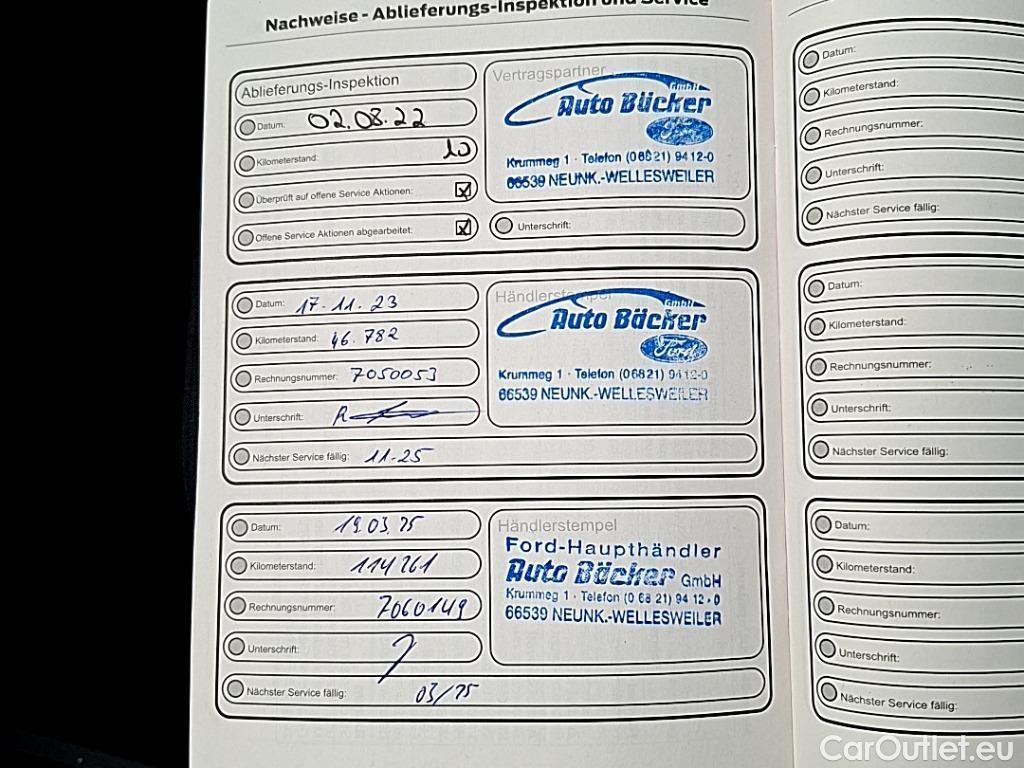 Nachweise - Ablieferungs-Inspektion und Service
Ablieferungs-Inspektion
Datum: 02.08.22
Kilometerstand: 10
Überprüft auf offene Service Aktionen: X
Offene Service Aktionen abgearbeitet: X
Vertragspartner
GmbH
Auto Bäcker
Ford
Krummeg 1 · Telefon (06821) 9412-0
66539 NEUNK.-WELLESWEILER
Unterschrift:
Datum: 17.11.23
Kilometerstand: 46.782
Rechnungsnummer: 7050053
Unterschrift:
Nächster Service fällig: 11-25
Händlerstempel
GmbH
Auto Bäcker
Ford
Krummeg 1 · Telefon (06821) 9412-0
66539 NEUNK.-WELLESWEILER
Datum: 19.03.25
Kilometerstand: 114261
Rechnungsnummer: 7060149
Unterschrift:
Nächster Service fällig: 03/25
Händlerstempel
Ford-Haupthändler
Auto Bäcker GmbH
Krummeg 1 · Telefon (0 68 21) 94 12-0
66539 NEUNK.-WELLESWEILER
Datum:
Kilometerstand:
Rechnungsnummer:
Unterschrift:
Nächster Service fällig:
Datum:
Kilometerstand:
Rechnungsnummer:
Unterschrift:
Nächster Service fällig:
Datum:
Kilometerstand:
Rechnungsnummer:
Unterschrift:
Nächster Service fällig:
CarOutlet.eu